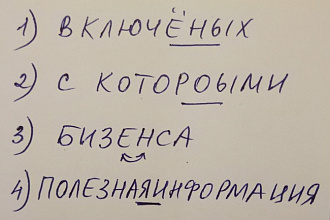 1) ВКЛЮЧЁНЫХ
2) С КОТОРОЫМИ
3) БИЗЕНСА
4) ПОЛЕЗНАЯИНФОРМАЦИЯ